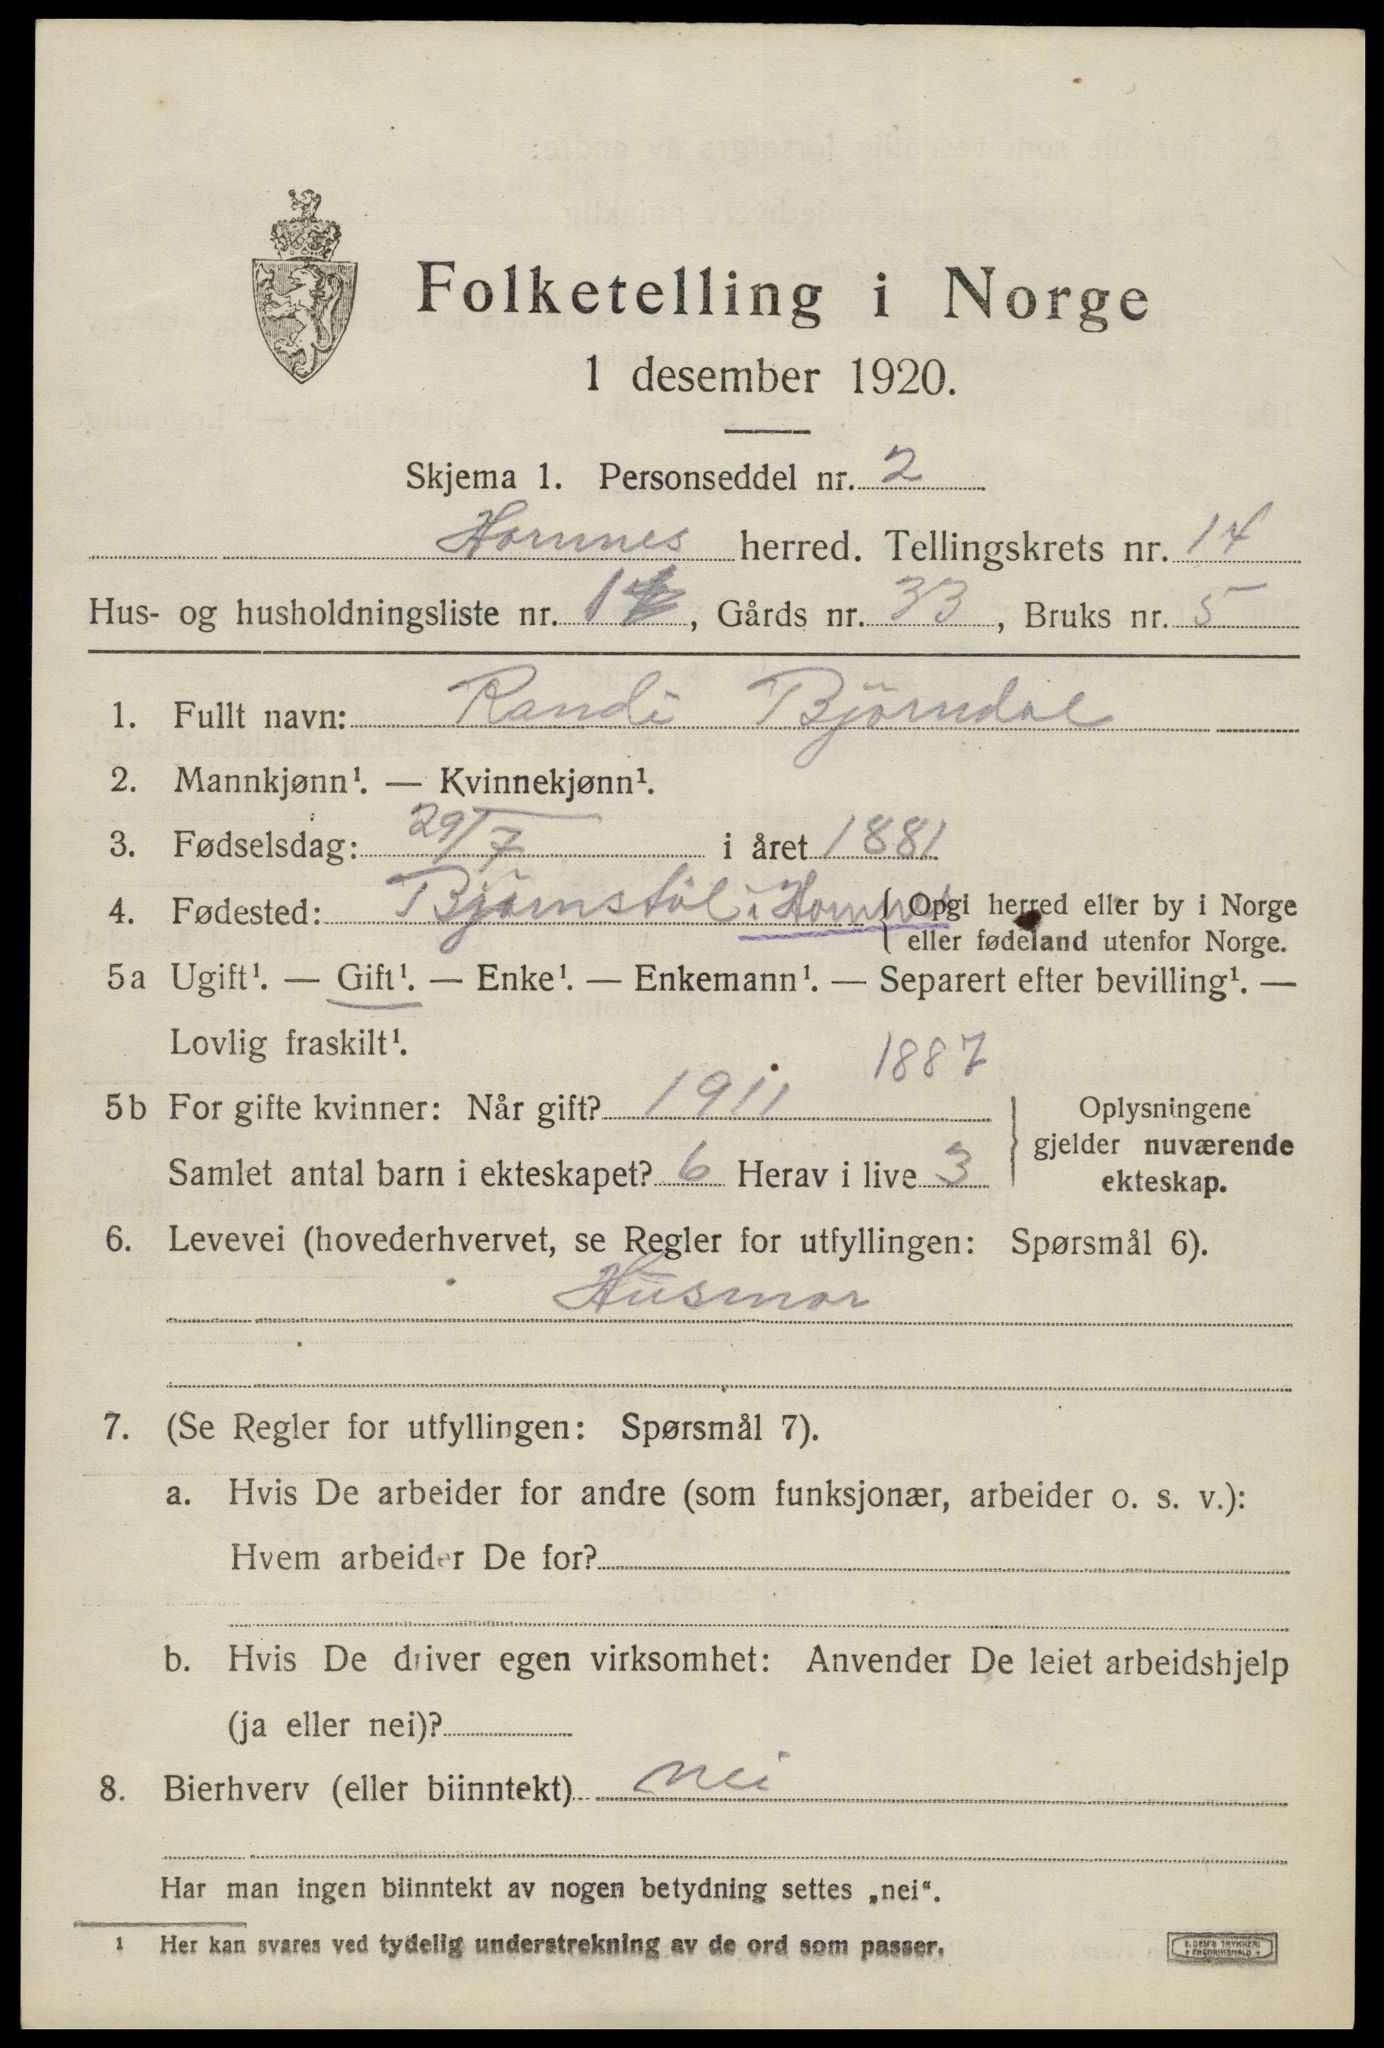 Folketelling i Norge
1 desember 1920.
Skjema 1. Personseddel nr. 2
Hornnes herred. Tellingskrets nr. 14
Hus- og husholdningsliste nr. 1, Gårds nr. 33, Bruks nr. 5
1. Fullt navn: Randi Björndal
2. Mannkjønn¹. — Kvinnekjønn¹.
3. Fødselsdag: 29/7 i året 1881
4. Fødested: Björnstöl i Hornnes { Opgi herred eller by i Norge
eller fødeland utenfor Norge.
5a Ugift¹. — Gift¹. — Enke¹. — Enkemann¹. — Separert efter bevilling¹. —
Lovlig fraskilt¹.
1887
5b For gifte kvinner: Når gift? 1911
Samlet antal barn i ekteskapet? 6 Herav i live 3
} Oplysningene
gjelder nuværende
ekteskap.
6. Levevei (hovederhvervet, se Regler for utfyllingen: Spørsmål 6).
Husmor
7. (Se Regler for utfyllingen: Spørsmål 7).
a. Hvis De arbeider for andre (som funksjonær, arbeider o. s. v.):
Hvem arbeider De for?
b. Hvis De driver egen virksomhet: Anvender De leiet arbeidshjelp
(ja eller nei)?
8. Bierhverv (eller biinntekt) nei
Har man ingen biinntekt av nogen betydning settes „nei“.
1 Her kan svares ved tydelig understrekning av de ord som passer.
E. SEM'S TRYKKERI
FREDRIKSHALD